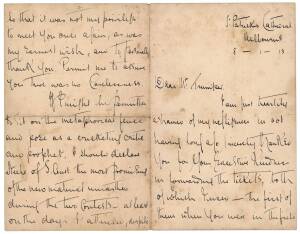 St Patrick's Cathedral
Melbourne
8 - 1 - 13
Dear Mr Trumper
I am just heartily
ashamed of my negligence in not
having long ago, thanked
you for your kindness
in forwarding the tickets, both
of which I used - the first of
them when you were in the
so that it was not my privilege
to meet you once again, as was
my earnest wish, and to personally
thank you. Permit me to assure
you this was no carelessness.
If I might be permitted
to sit on the metaphorical fence
and pose as a cricketing critic
and prophet, I should declare
the most promising
of the new material unearthed
during the two contests - at least
on the days I attended, despite